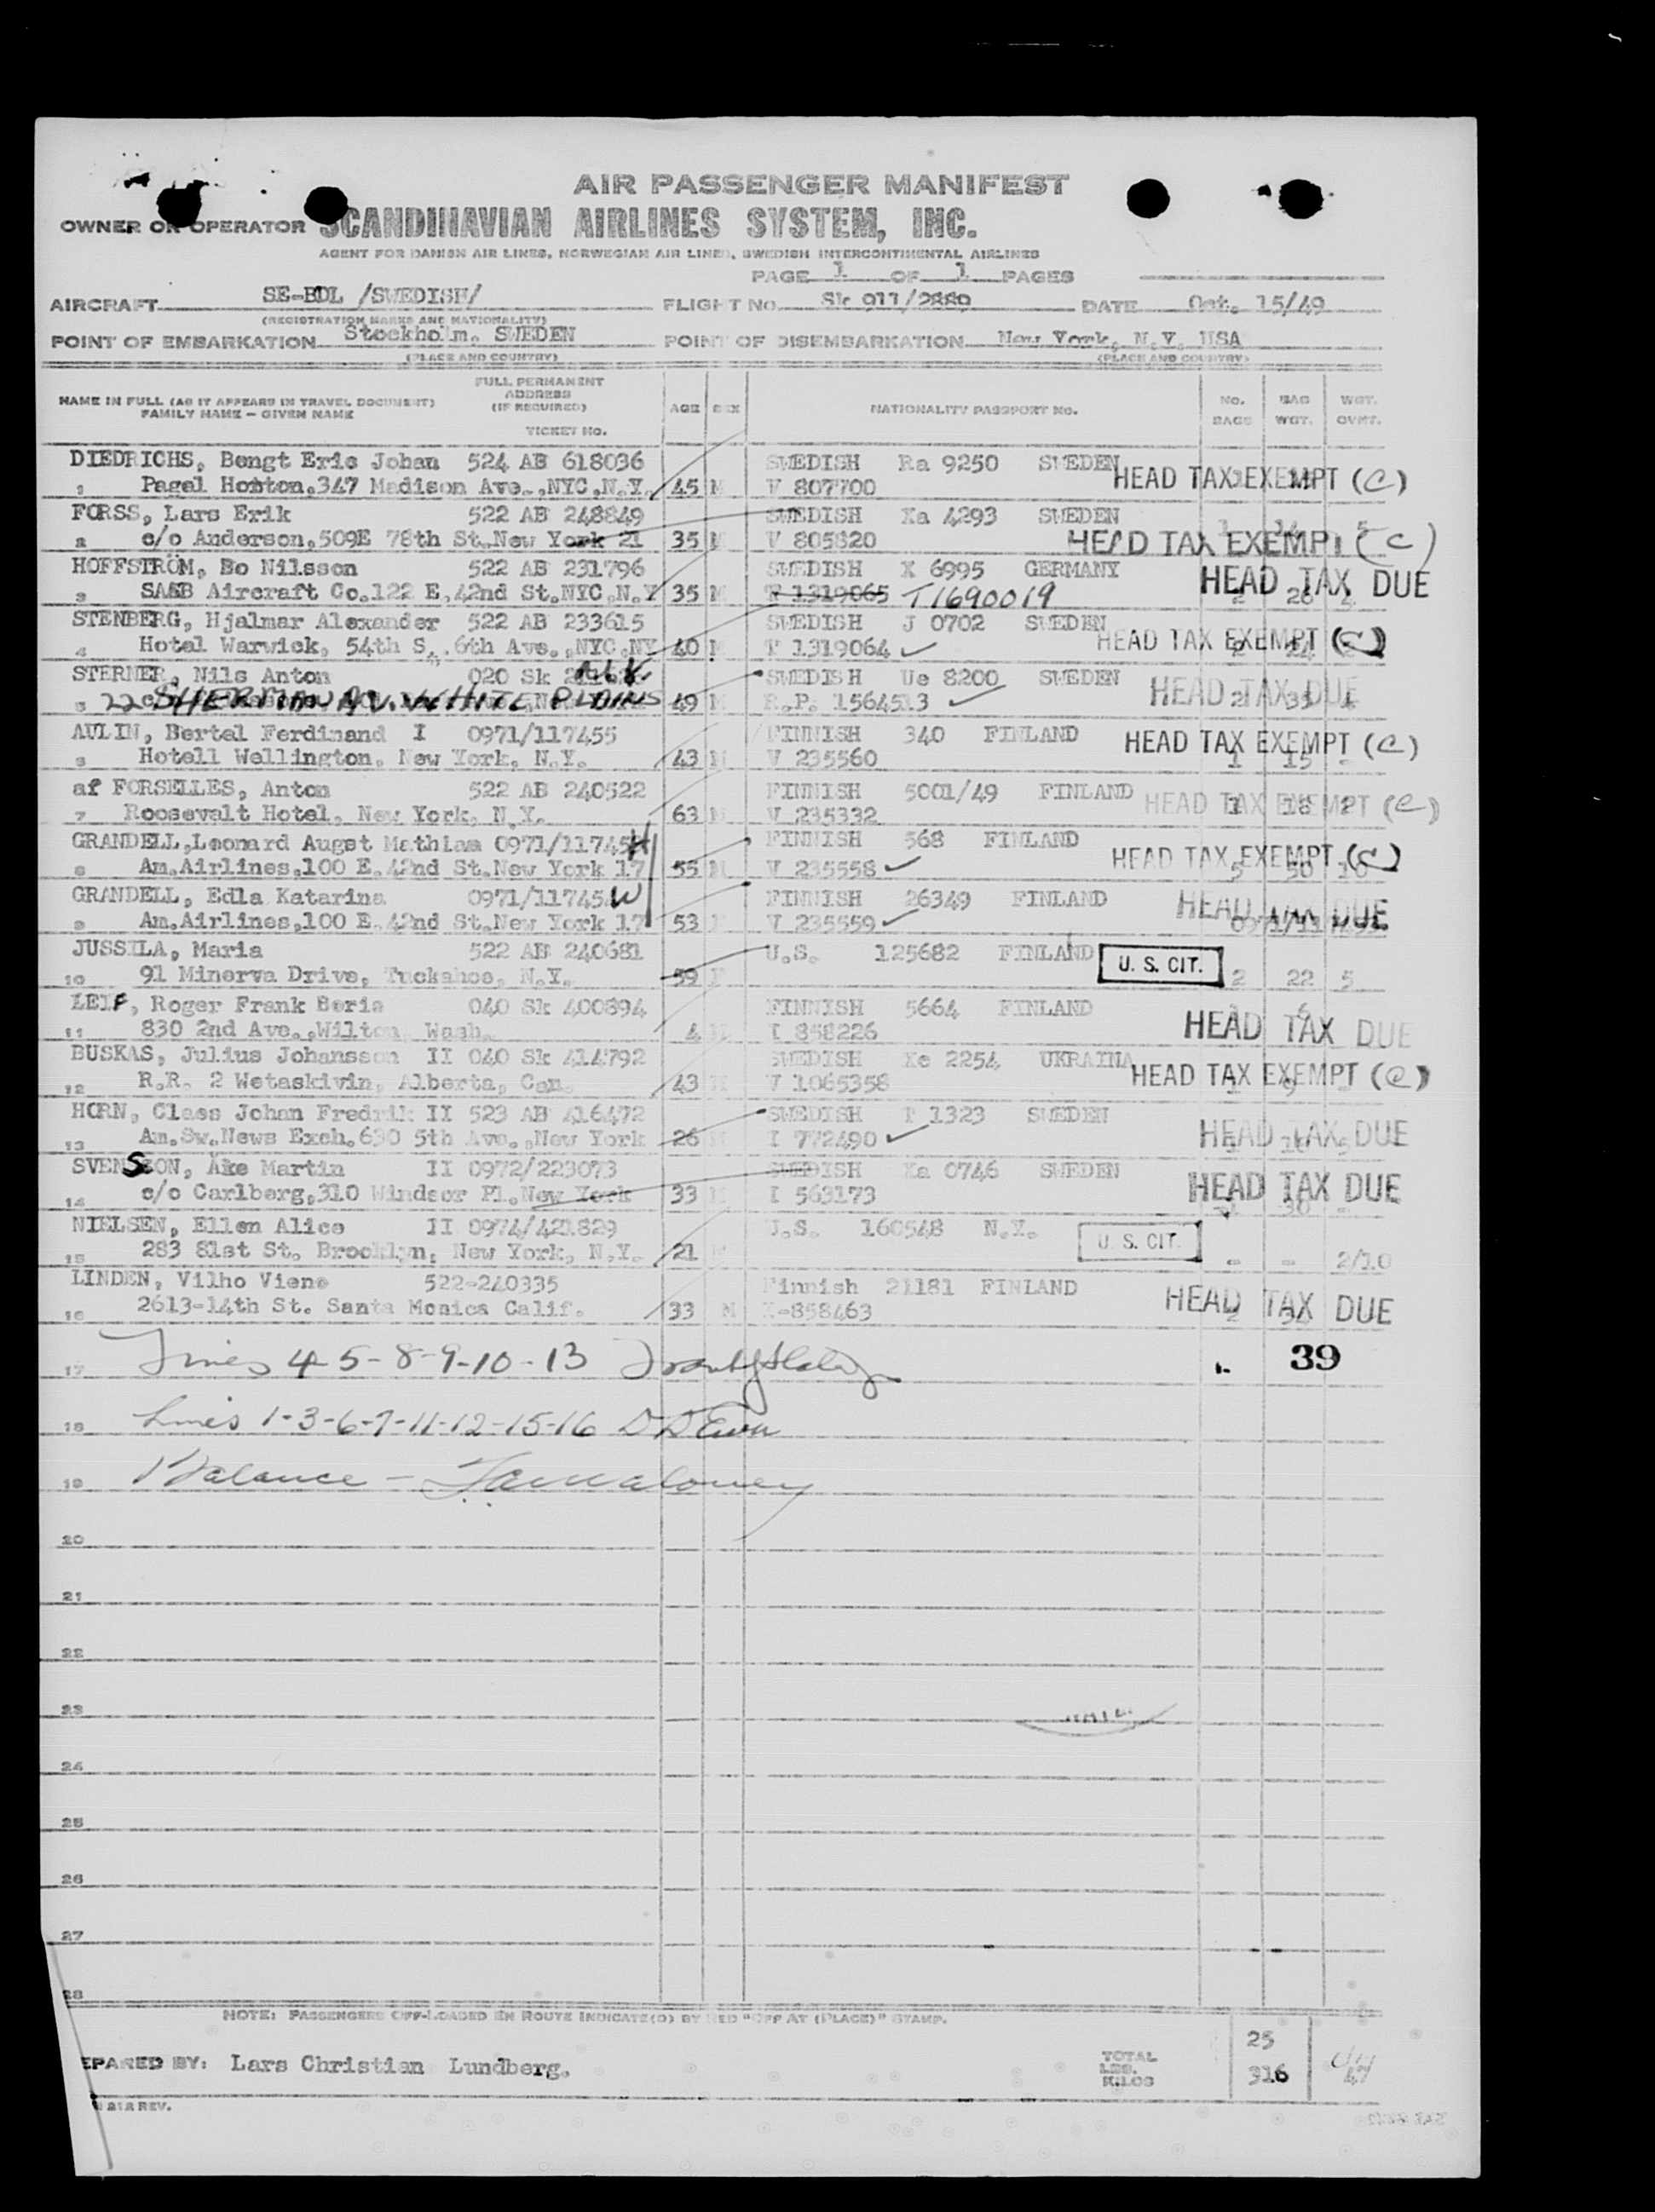 AIR PASSENGER MANIFEST
OWNER OR OPERATOR SCANDINAVIAN AIRLINES SYSTEM, INC.
AGENT FOR DANISH AIR LINES, NORWEGIAN AIR LINES, SWEDISH INTERCONTINENTAL AIRLINES
PAGE 1 OF 1 PAGES
AIRCRAFT SE-BDL /SWEDISH/ FLIGHT NO. Sk 911/2889 DATE Oct. 15/49
(REGISTRATION MARKS AND NATIONALITY)
POINT OF EMBARKATION Stockholm, SWEDEN POINT OF DISEMBARKATION New York, N.Y. USA
(PLACE AND COUNTRY) (PLACE AND COUNTRY)
NAME IN FULL (AS IT APPEARS IN TRAVEL DOCUMENT) FAMILY NAME - GIVEN NAME FULL PERMANENT ADDRESS (IF REQUIRED) TICKET NO. AGE SEX NATIONALITY PASSPORT NO. NO. BAGS BAG WGT. WGT. OVWT.
DIEDRICHS, Bengt Eric Johan 524 AB 618036 SWEDISH Ra 9250 SWEDEN HEAD TAX EXEMPT (C)
1 Pagel Honton,347 Madison Ave.,NYC,N.Y. 45 M V 807700
FORSS, Lars Erik 522 AB 248849 SWEDISH Xa 4293 SWEDEN
2 c/o Anderson,509E 78th St.New York 21 35 M V 805820 HEAD TAX EXEMPT (C)
HOFFSTRÖM, Bo Nilsson 522 AB 231796 SWEDISH X 6995 GERMANY HEAD TAX DUE
3 SAAB Aircraft Co.122 E.42nd St.NYC,N.Y 35 M T 1319065 T1690019 2 26 4
STENBERG, Hjalmar Alexander 522 AB 233615 SWEDISH J 0702 SWEDEN HEAD TAX EXEMPT (C)
4 Hotel Warwick, 54th S,.6th Ave.,NYC,NY 40 M T 1319064
STERNER, Nils Anton 020 Sk SWEDISH Ue 8200 SWEDEN HEAD TAX DUE
5 22 SHERMAN AV. WHITE PLAINS 49 M R.P. 1564513
AULIN, Bertel Ferdinand I 0971/117455 FINNISH 340 FINLAND HEAD TAX EXEMPT (C)
6 Hotell Wellington, New York, N.Y. 43 M V 235560 1 15 -
af FORSELLES, Anton 522 AB 240522 FINNISH 5001/49 FINLAND HEAD TAX EXEMPT (C)
7 Roosevalt Hotel, New York, N.Y. 63 M V 235332 1 18 2
GRANDELL,Leonard Augst Mathias 0971/117454 H FINNISH 568 FINLAND HEAD TAX EXEMPT (C)
8 Am.Airlines,100 E.42nd St.New York 17 55 M V 235558 5 50 10
GRANDELL, Edla Katarina 0971/11745 W FINNISH 26349 FINLAND HEAD TAX DUE
9 Am.Airlines,100 E.42nd St.New York 17 53 V 235559
JUSSILA, Maria 522 AB 240681 U.S. 125682 FINLAND U. S. CIT.
10 91 Minerva Drive, Tuckahoe, N.Y. 59 F 2 22 5
LEIF, Roger Frank Boris 040 Sk 400894 FINNISH 5664 FINLAND HEAD TAX DUE
11 830 2nd Ave.,Wilton Wash. 4 M I 858226
BUSKAS, Julius Johansson II 040 Sk 414792 SWEDISH Xe 2254 UKRAINA HEAD TAX EXEMPT (C)
12 R.R. 2 Wetaskivin, Alberta, Can. 43 M V 1065358 1 9 -
HORN, Claes Johan Fredrik II 523 AB 416472 SWEDISH T 1323 SWEDEN HEAD TAX DUE
13 Am.Sw.News Exch.630 5th Ave.,New York 26 M I 772490
SVENSSON, Åke Martin II 0972/223073 SWEDISH Xa 0746 SWEDEN HEAD TAX DUE
14 c/o Carlberg,310 Windsor Pl.New York 33 M I 563173 30 -
NIELSEN, Ellen Alice II 0974/421829 U.S. 160548 N.Y. U. S. CIT.
15 283 81st St. Brooklyn, New York, N.Y. 21 - - 2/10
LINDEN, Vilho Viene 522-240335 Finnish 21181 FINLAND HEAD TAX DUE
16 2613-14th St. Santa Monica Calif. 33 M -858463
17 Lines 4-5-8-9-10-13 39
18 Lines 1-3-6-7-11-12-15-16
19 Balance -
20
21
22
23
24
25
26
27
28
NOTE: PASSENGERS OFF-LOADED EN ROUTE INDICATE(D) BY RED "OFF AT (PLACE)" STAMP.
EPARED BY: Lars Christian Lundberg. TOTAL LBS. KILOS 25 316
REV.